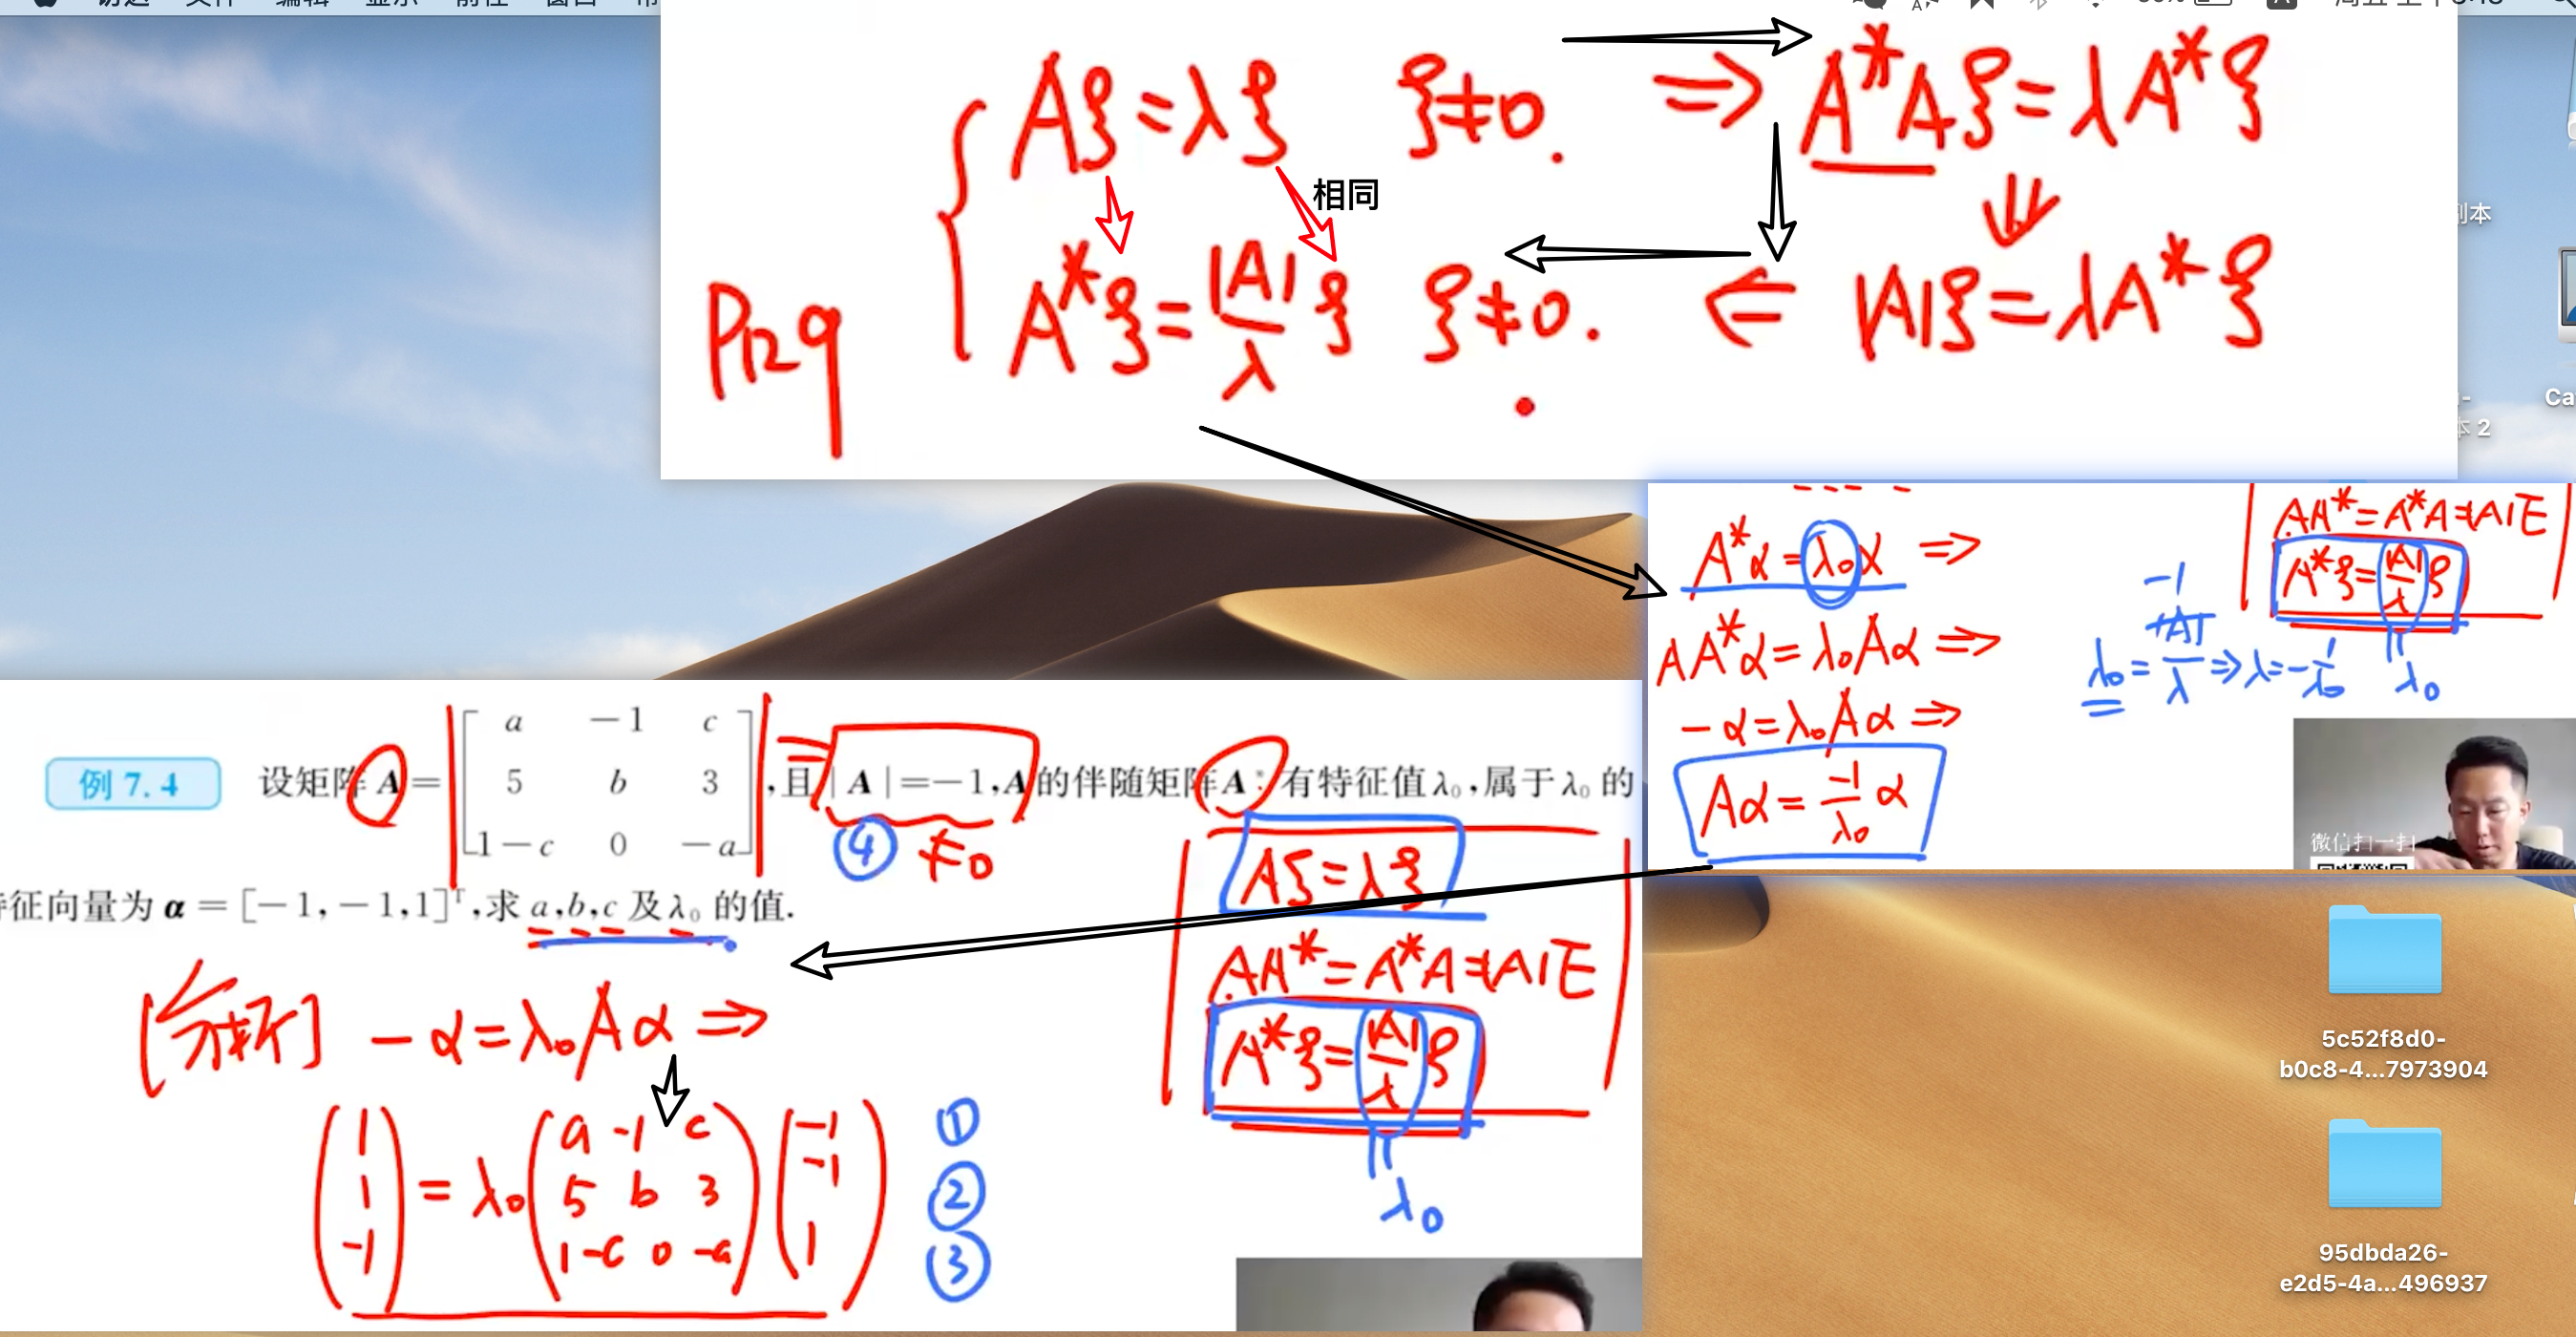 Aξ=λξ ξ≠0. ⇒ A*Aξ=λA*ξ
相同
P129 A*ξ=|A|/λ ξ ξ≠0. ⇐ |A|ξ=λA*ξ
副本
本 2
Ca
A*α=λ₀α ⇒
AA*α=λ₀Aα ⇒
-α=λ₀Aα ⇒
Aα=-1/λ₀ α
AA*=A*A=|A|E
A*ξ=|A|/λ ξ
-1
λ₀=|A|/λ ⇒ λ=-1/λ₀ λ₀
微信扫一扫
例 7.4 设矩阵 A=[a -1 c; 5 b 3; 1-c 0 -a],且|A|=-1,A的伴随矩阵A*有特征值λ₀,属于λ₀的
④ ≠0
征向量为 α=[-1,-1,1]ᵀ,求 a,b,c 及 λ₀ 的值.
Aξ=λξ
AA*=A*A=|A|E
A*ξ=|A|/λ ξ
λ₀
[分析] -α=λ₀Aα ⇒
(1 1 -1)=λ₀(a -1 c; 5 b 3; 1-c 0 -a)(-1 -1 1)
①
②
③
5c52f8d0-
b0c8-4...7973904
95dbda26-
e2d5-4a...496937